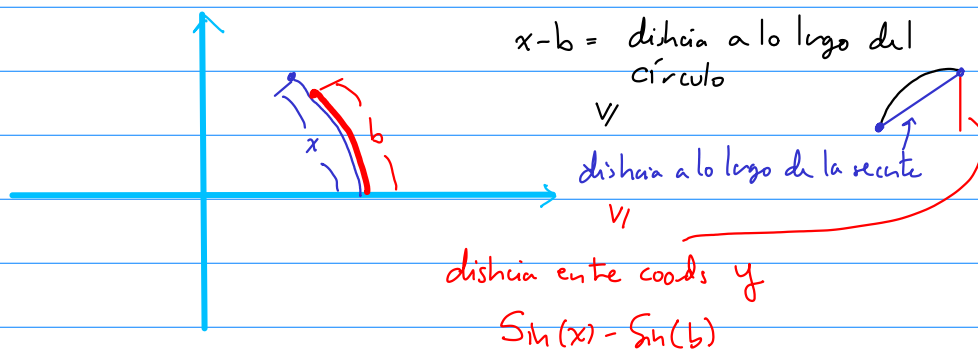 x-b = dishcia a lo lrgo del
círculo
V/
x
b
dishcia a lo largo de la secnte
V/
dishcia entre coods y
Sin(x) - Sin(b)